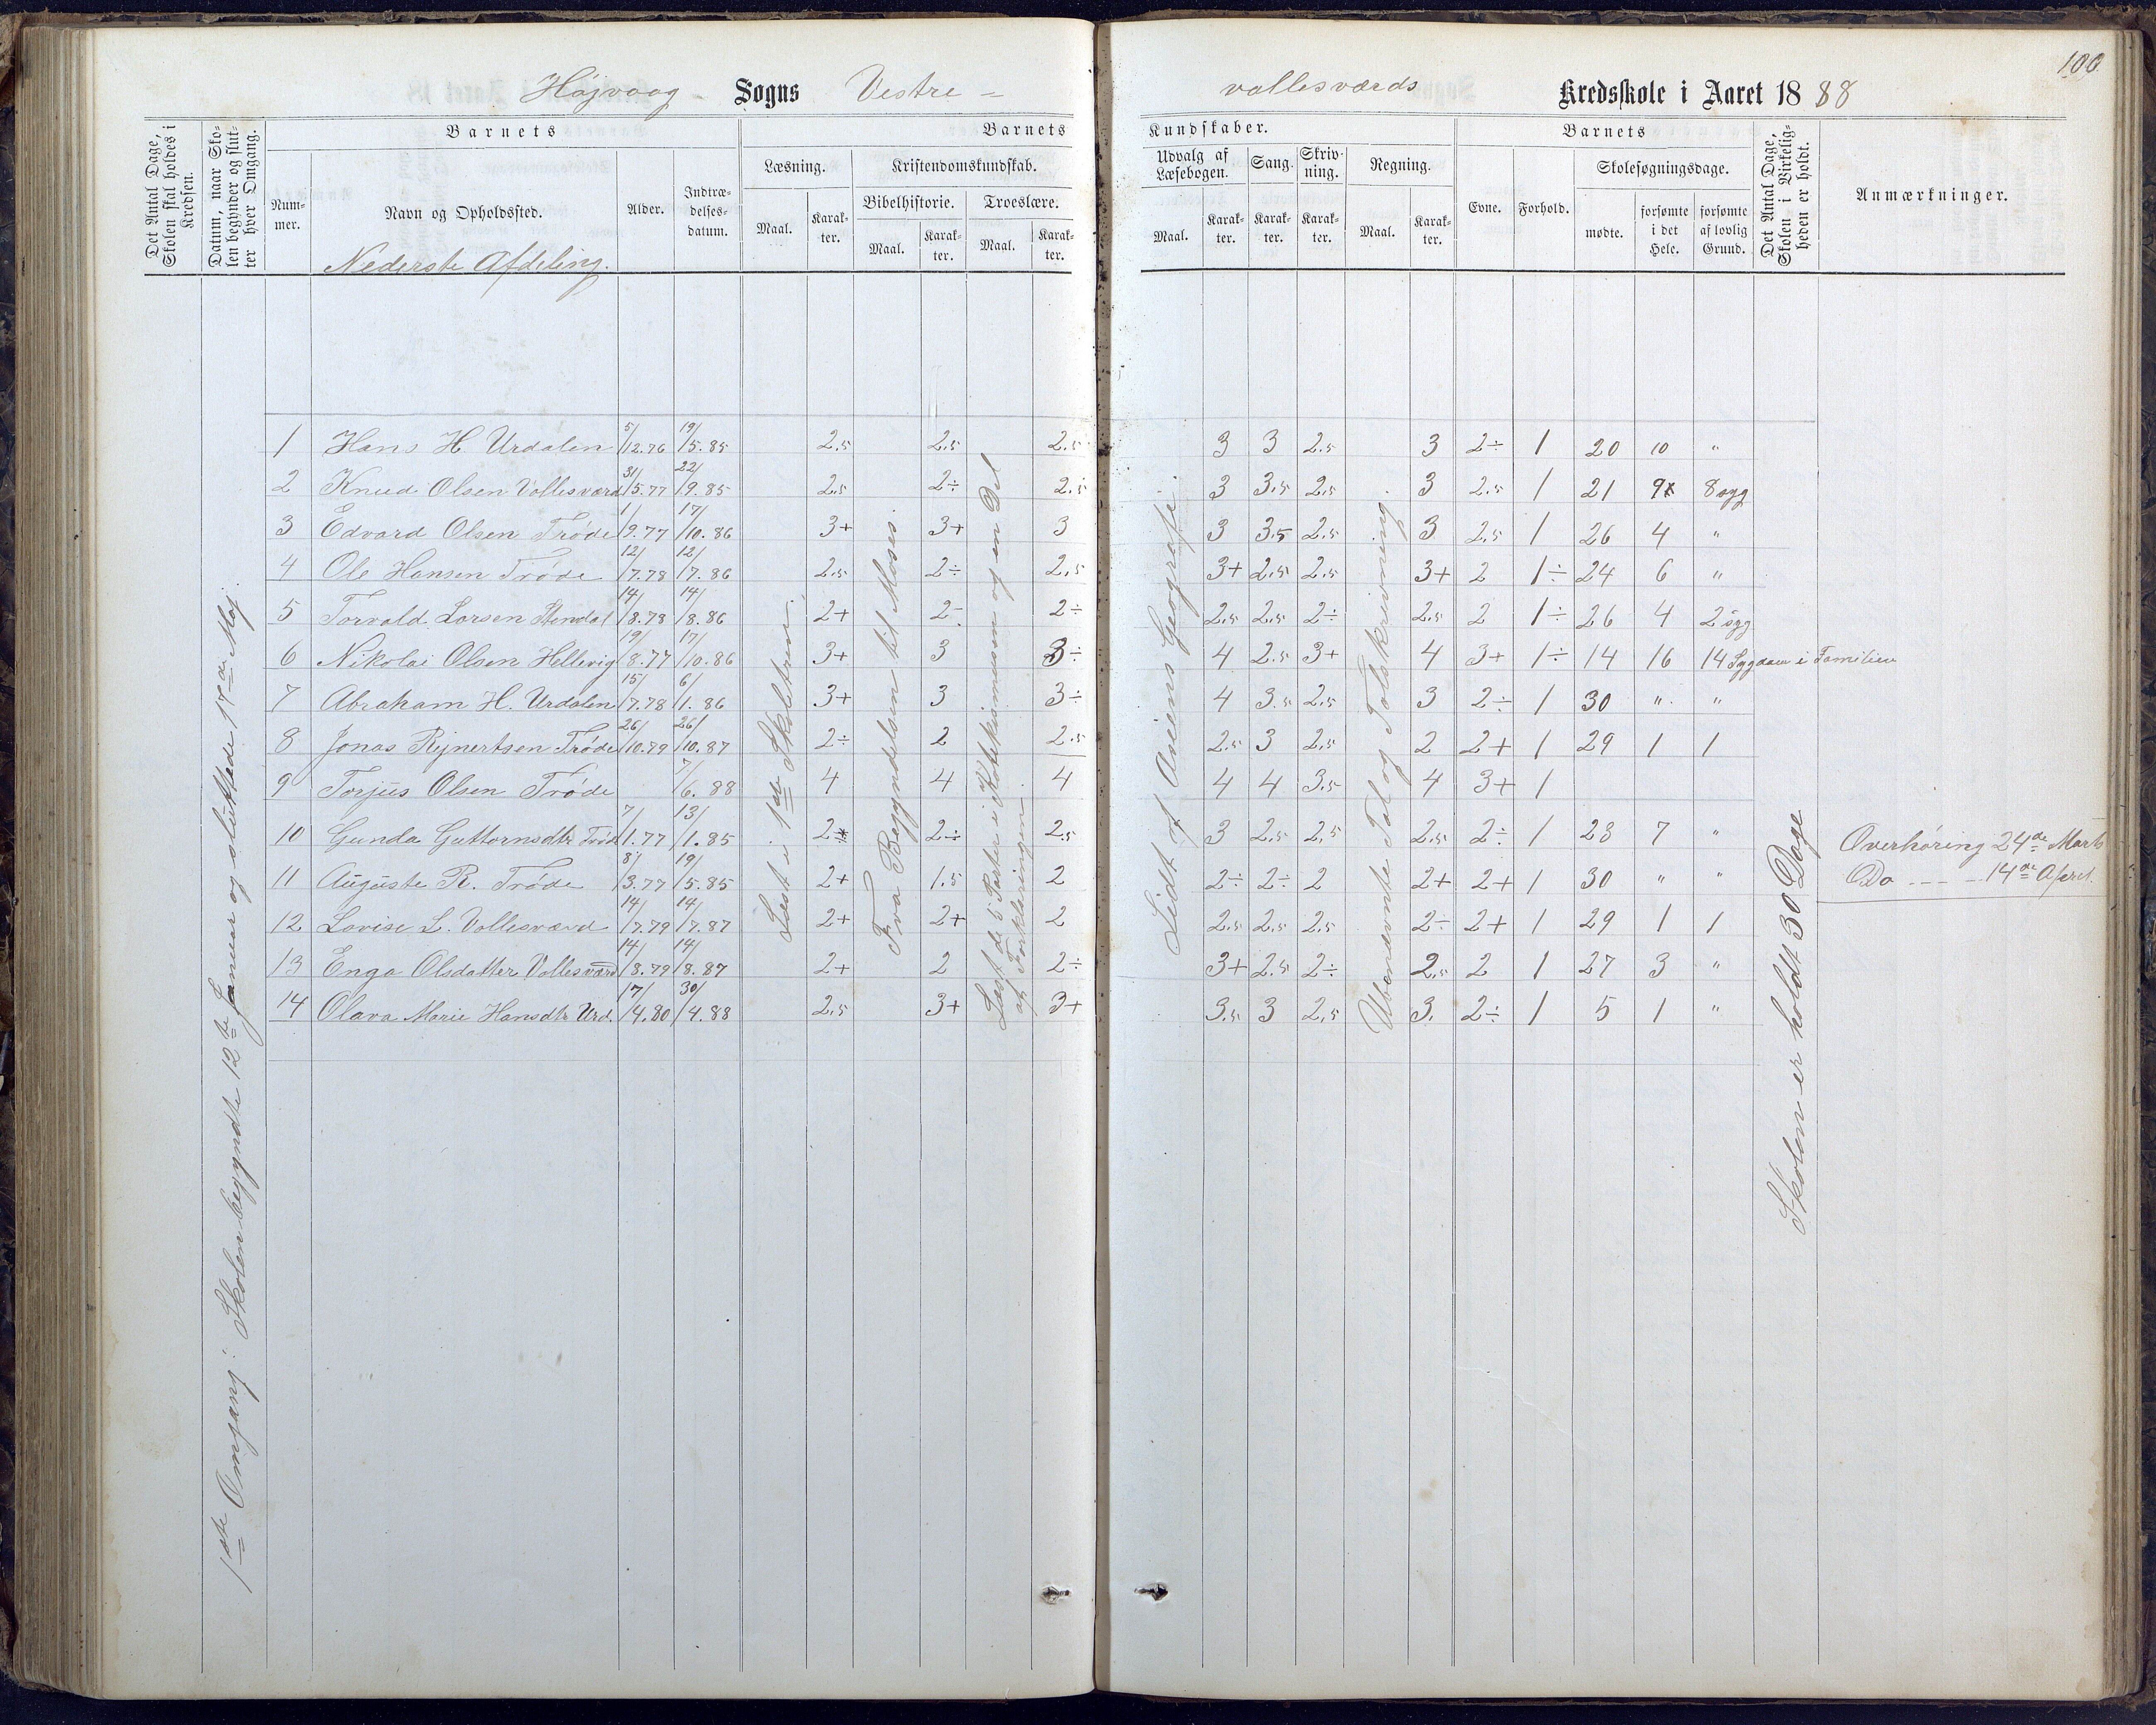 100
Højvaag - Sogns Vestre - vallesværds Kredsskole i Aaret 1888
Det Antal Dage, Skolen skal holdes i Kredsen.
Datum, naar Skolen begynder og slutter hver Omgang.
Barnets
Nummer.
Navn og Opholdssted.
Alder.
Indtrædelsesdatum.
Barnets Kundskaber.
Læsning.
Maal.
Karakter.
Kristendomskundskab.
Bibelhistorie.
Maal.
Karakter.
Troeslære.
Maal.
Karakter.
Udvalg af Læsebogen.
Maal.
Karakter.
Sang.
Karakter.
Skrivning.
Karakter.
Regning.
Maal.
Karakter.
Barnets
Evne.
Forhold.
Skolesøgningsdage.
mødte.
forsømte i det Hele.
forsømte af lovlig Grund.
Det Antal Dage, Skolen i Virkeligheden er holdt.
Anmærkninger.
Nederste Afdeling.
1 Hans H. Urdalen 5/12.76 19/5.85 2.5 2.5 2.5 3 3 2.5 3 2÷ 1 20 10 "
2 Knud Olsen Vallesværd 31/5.77 22/9.85 2.5 2÷ 2.5 3 3.5 2.5 3 2.5 1 21 9 8 syg
3 Edvard Olsen Trøde 1/9.77 17/10.86 3+ 3+ 3 3 3.5 2.5 3 2.5 1 26 4 "
4 Ole Hansen Trøde 12/7.78 12/7.86 2.5 2÷ 2.5 3+ 2.5 2.5 3+ 2 1÷ 24 6 "
5 Torvald Larsen Stendal 14/8.78 14/8.86 2+ 2- 2÷ 2.5 2.5 2÷ 2.5 2 1÷ 26 4 2 syg
6 Nikolai Olsen Hellevig 19/8.77 17/10.86 3+ 3 3÷ 4 2.5 3+ 4 3+ 1÷ 14 16 14 Sygdom i Familien
7 Abraham H. Urdalen 15/7.78 6/1.86 3+ 3 3÷ 4 3.5 2.5 3 2÷ 1 30 " "
8 Jonas Rejnertsen Trøde 26/10.79 26/10.87 2÷ 2 2.5 2.5 3 2.5 2 2+ 1 29 1 1
9 Torjus Olsen Trøde 7/6.88 4 4 4 4 4 3.5 4 3+ 1
10 Gunda Guttormsdtr Trøde 7/1.77 13/1.85 2÷ 2÷ 2.5 3 2.5 2.5 2.5 2÷ 1 23 7 "
11 Auguste R. Trøde 8/3.77 19/5.85 2+ 1.5 2 2÷ 2÷ 2 2+ 2+ 1 30 " "
12 Lovise L. Vallesværd 14/7.79 14/7.87 2+ 2+ 2 2.5 2.5 2.5 2÷ 2+ 1 29 1 1
13 Enga Olsdatter Vallesværd 14/8.79 14/8.87 2+ 2 2÷ 3+ 2.5 2÷ 2.5 2 1 27 3 "
14 Olava Marie Hansdtr Urd. 17/4.80 30/4.88 2.5 3+ 3+ 3.5 3 2.5 3. 2÷ 1 5 1 "
1ste Omgang: Skolen begyndte 12te Januar og sluttede 17de Maj.
Læst i 1ste Skoletrin.
Fra Begyndelsen til Moses.
Læst de 5 Parter i Katekismusen og en Del
af Forklaringen.
Lidt af Asiens Geografi.
Ubenævnte Tal og Talskrivning.
Skolen er holdt 30 Dage
Overhøring 24de Marts
Do - - - - 14de April.